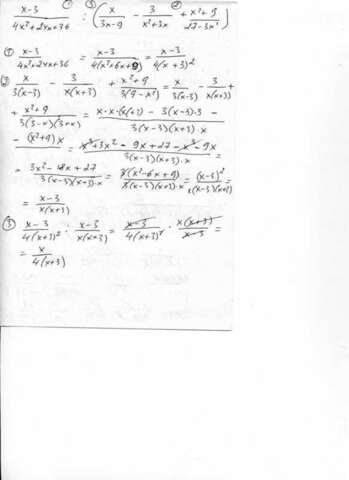 x-3 / 4x²+24x+36 ① : ③ ( x / 3x-9 - 3 / x²+3x ② + x²+9 / 27-3x² )
① x-3 / 4x²+24x+36 = x-3 / 4(x²+6x+9) = x-3 / 4(x+3)²
② x / 3(x-3) - 3 / x(x+3) + x²+9 / 3(9-x²) = x / 3(x-3) - 3 / x(x+3) +
+ x²+9 / 3(3-x)(3+x) = x·x·(x+3) - 3(x-3)·3 - / 3(x-3)(x+3)·x
- (x²+9)x = x³+3x²-9x+27-x³-9x / 3(x-3)(x+3)·x =
= 3x²-18x+27 / 3(x-3)(x+3)·x = 3(x²-6x+9) / 3(x-3)(x+3)·x = (x-3)² / x(x-3)(x+3) =
= x-3 / x(x+3)
③ x-3 / 4(x+3)² : x-3 / x(x+3) = x-3 / 4(x+3)² · x(x+3) / x-3 =
= x / 4(x+3)